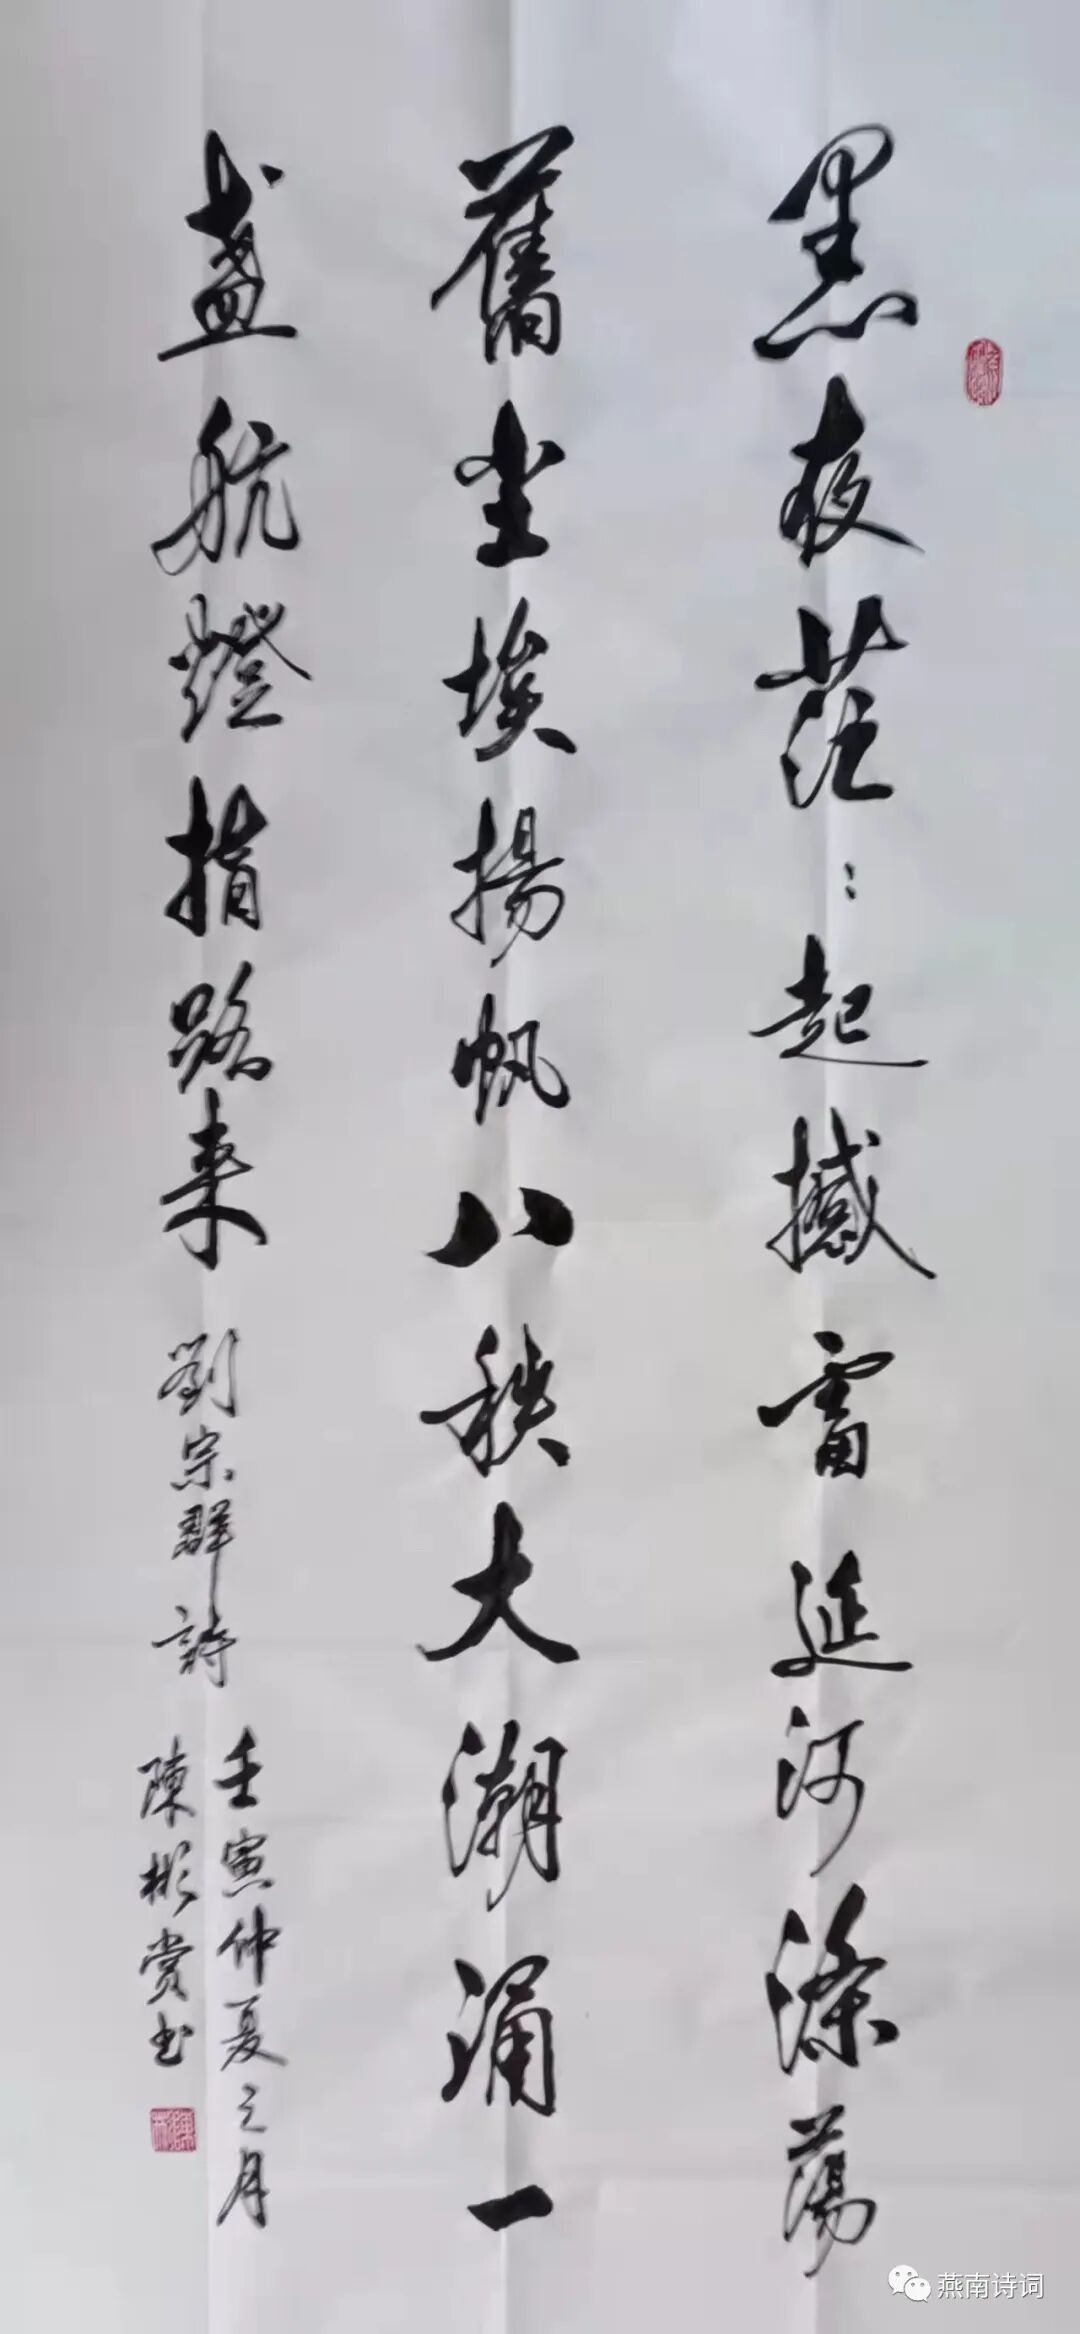 黑夜茫：起撼雷延河滌蕩
舊尘埃揚帆八秩大潮涌一
盏航燈指路来 劉宗群詩
壬寅仲夏之月
陳彬赏书
燕南诗词